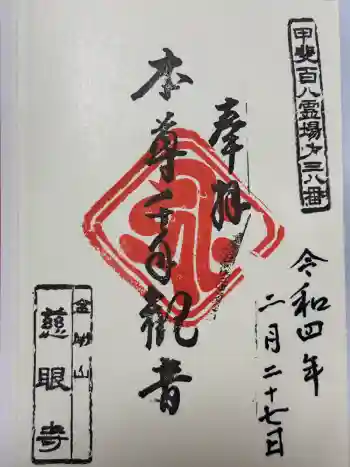 甲斐百八霊場才三八番
奉拝
令和四年
二月二十七日
本尊千手観音
金剛山
慈眼寺